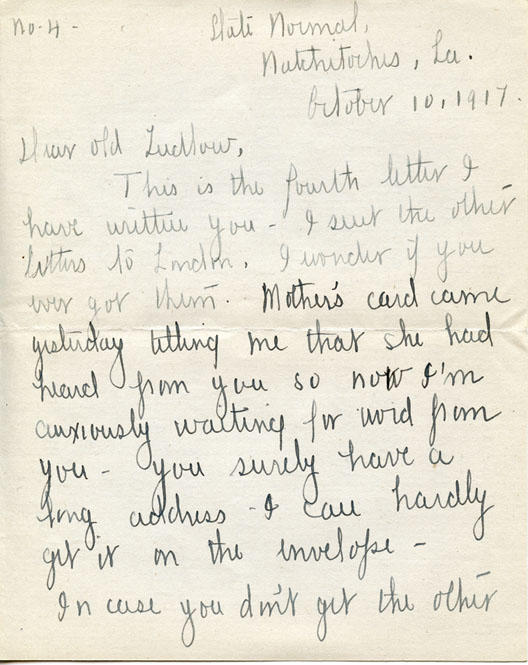 No. 4 -
State Normal,
Natchitoches, La.
October 10, 1917.
Dear old Ludlow,
This is the fourth letter I
have written you - I sent the other
letters to London. I wonder if you
ever got them. Mother's card came
yesterday telling me that she had
heard from you so now I'm
anxiously waiting for word from
you - You surely have a
long address - I can hardly
get it on the envelope -
In case you don't get the other